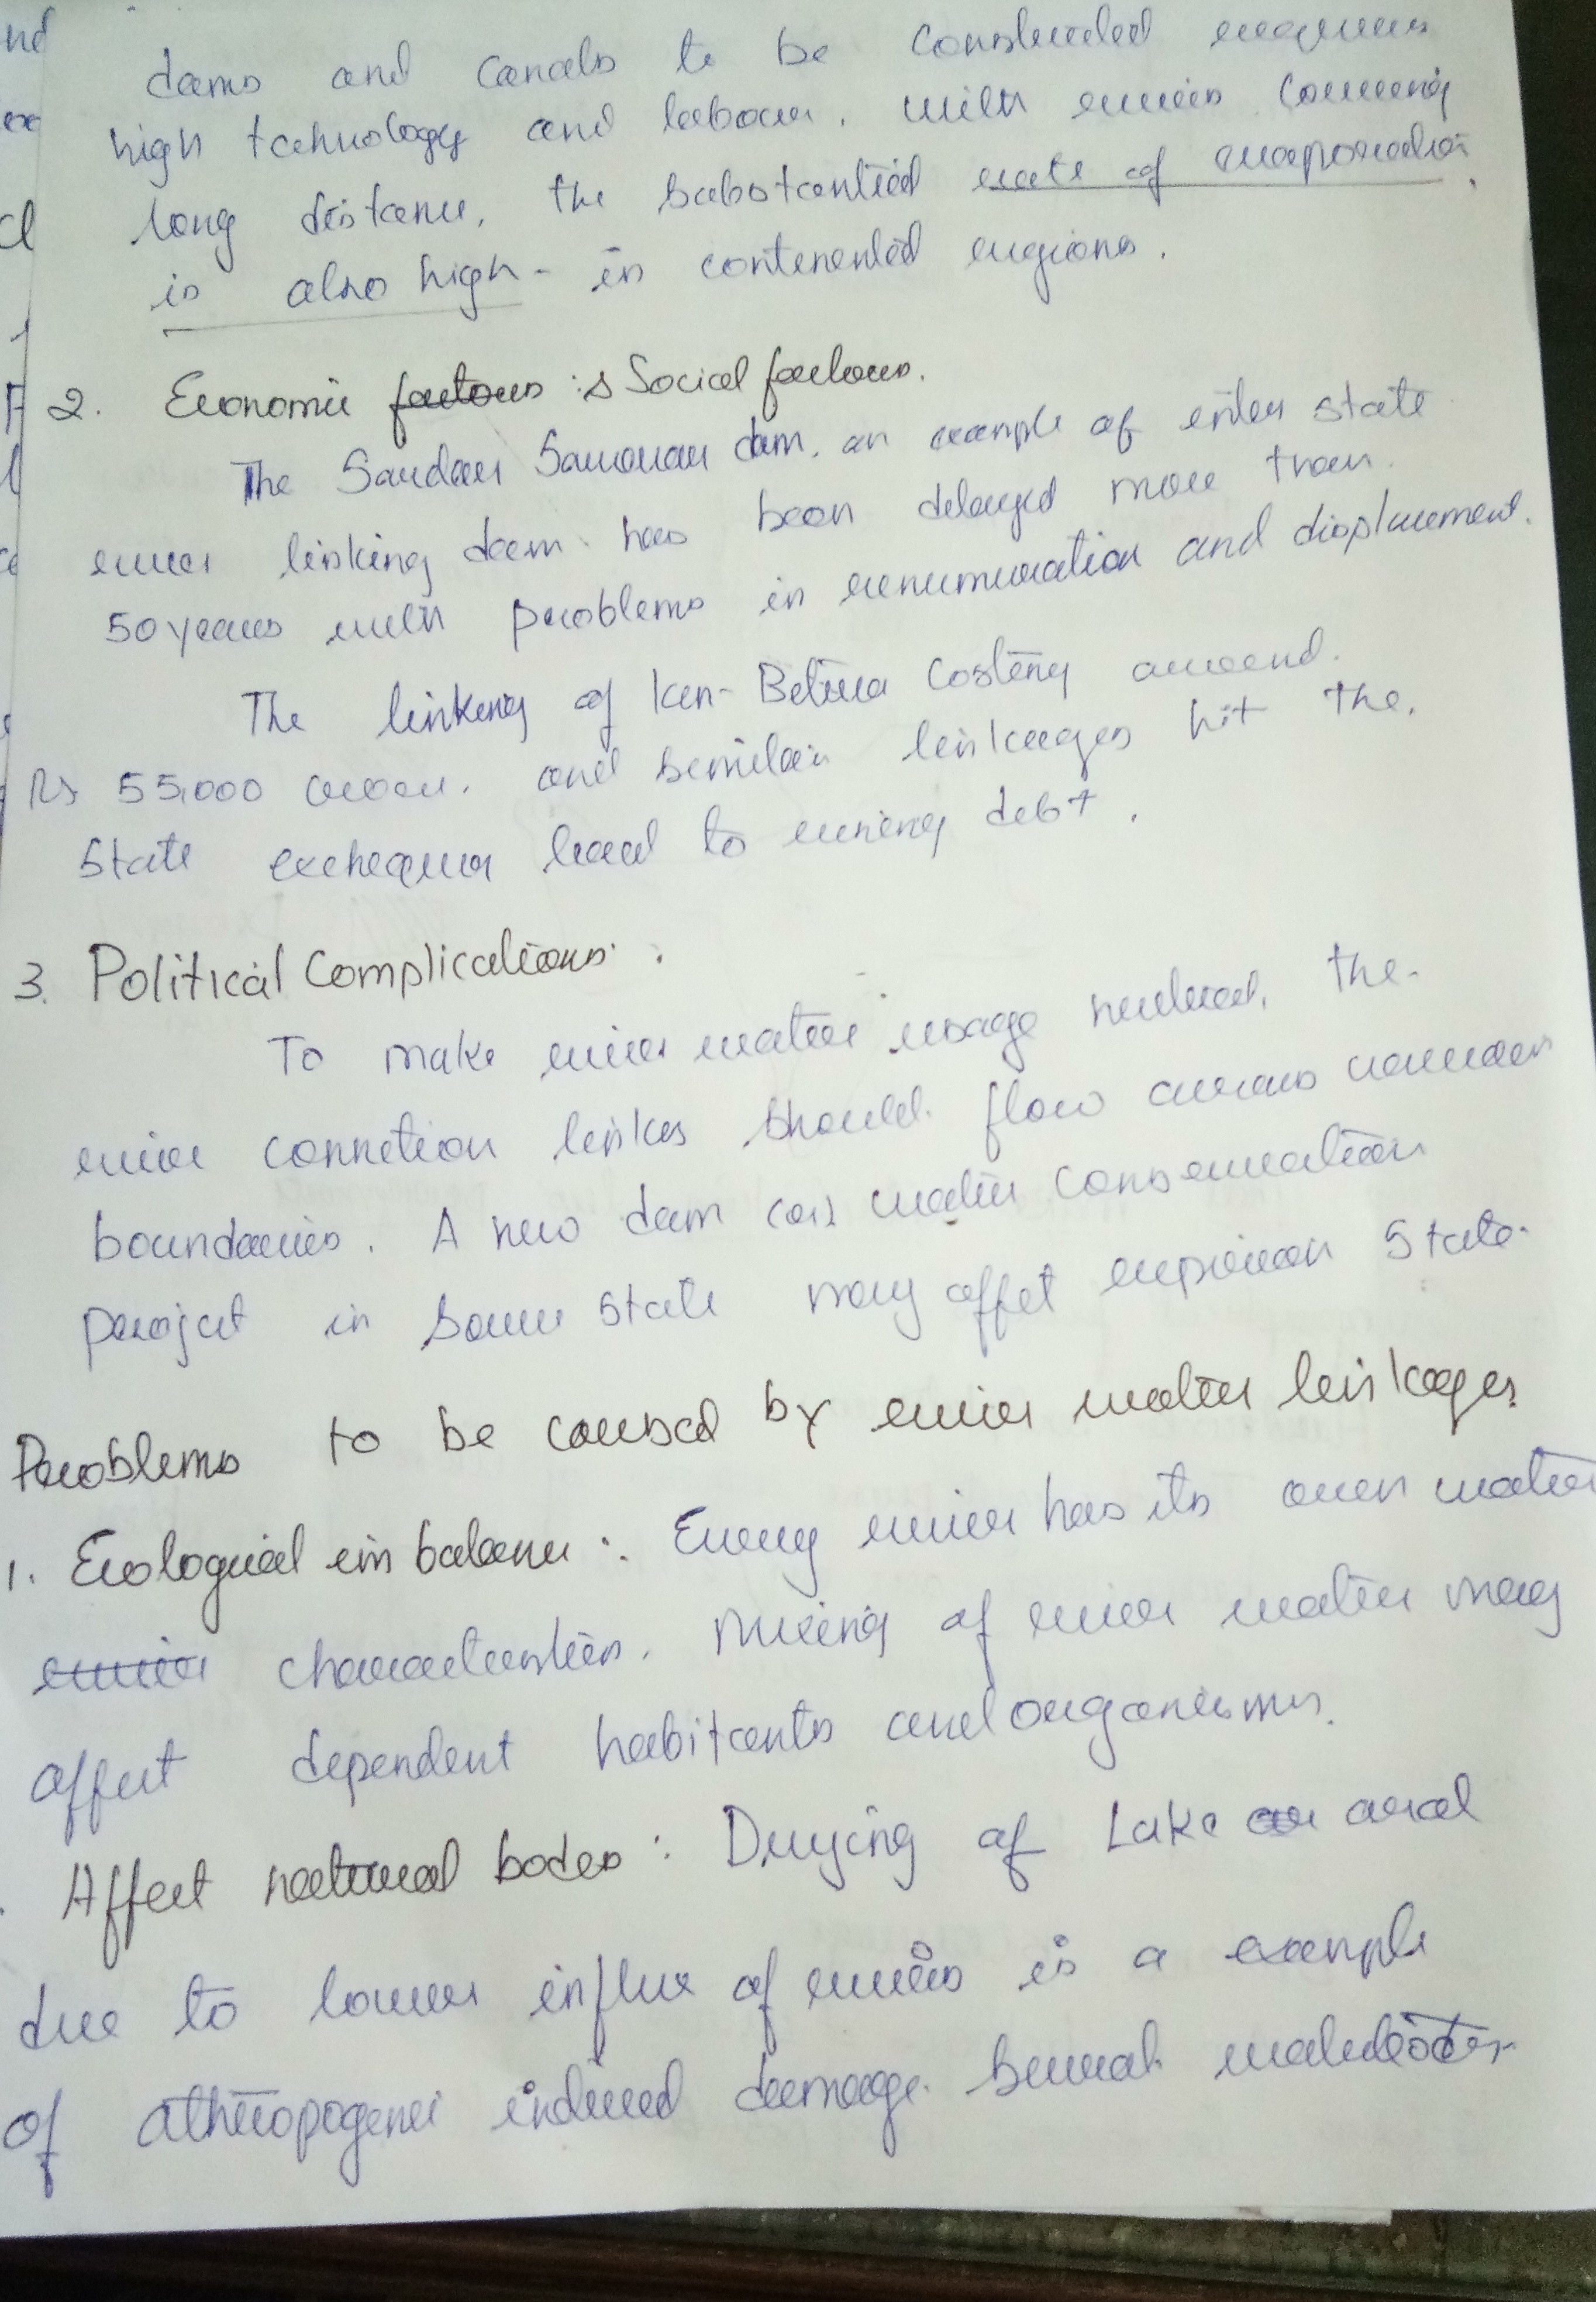 dams and canals to be constructed requires
high technology and labour. with rivers covering
long distance, the substantial rate of evaporation
is also high - in continental regions.
2. Economic factors : & Social factors.
The Sardar Sarovar dam, an example of inter state
river linking dam has been delayed more than
50 years with problems in renumuration and displacement.
The linking of Ken-Betwa costing around.
Rs 55,000 crore. and similar linkages hit the.
State exchequer lead to rising debt.
3. Political Complications :
To make river water usage neutral, the
river connetion links should flow across various
boundaries. A new dam (or) water conservation
project in some state may affet riparian State.
Problems to be caused by river water linkages.
1. Ecological imbalance : Every river has its own water
river characteristics. Mixing of river water may
affect dependent habitants and organisms.
Affect natural bodes : Drying of Lake aral
due to lower influx of rivers is a example
of athropogenic induced damage. Several waterbodies